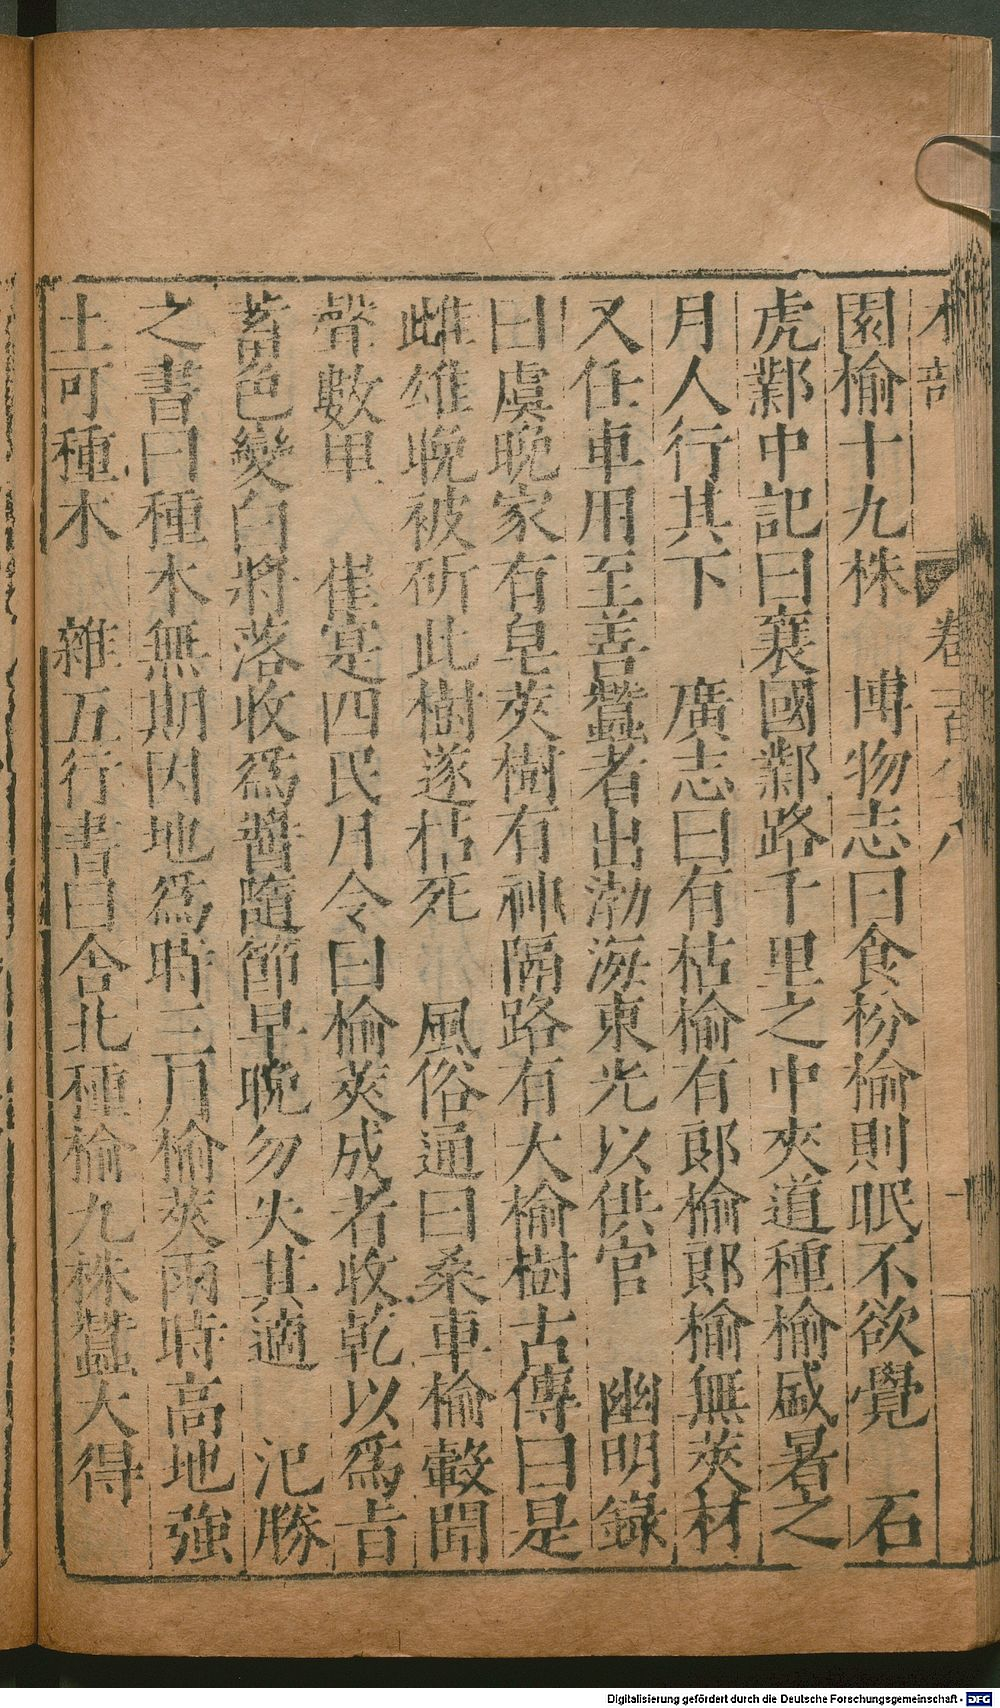 木部 卷百八八 十
園榆十九株 博物志曰食枌榆則眠不欲覺 石
虎鄴中記曰襄國鄴路千里之中夾道種榆盛暑之
月人行其下 廣志曰有枯榆有郎榆郎榆無莢材
又任車用至善蠶者出渤海東光以供官 幽明錄
曰虞晚家有皂莢樹有神隔路有大榆樹古傳曰是
雌雄晚被斫此樹遂枯死 風俗通曰桑車榆轂聞
聲數里 崔寔四民月令曰榆莢成者收乾以為旨
蓄色變白將落收為醬隨節早晚勿失其適 氾勝
之書曰種木無期因地為時三月榆莢雨時高地強
土可種木 雜五行書曰舍北種榆九株蠶大得
Digitalisierung gefördert durch die Deutsche Forschungsgemeinschaft - DFG